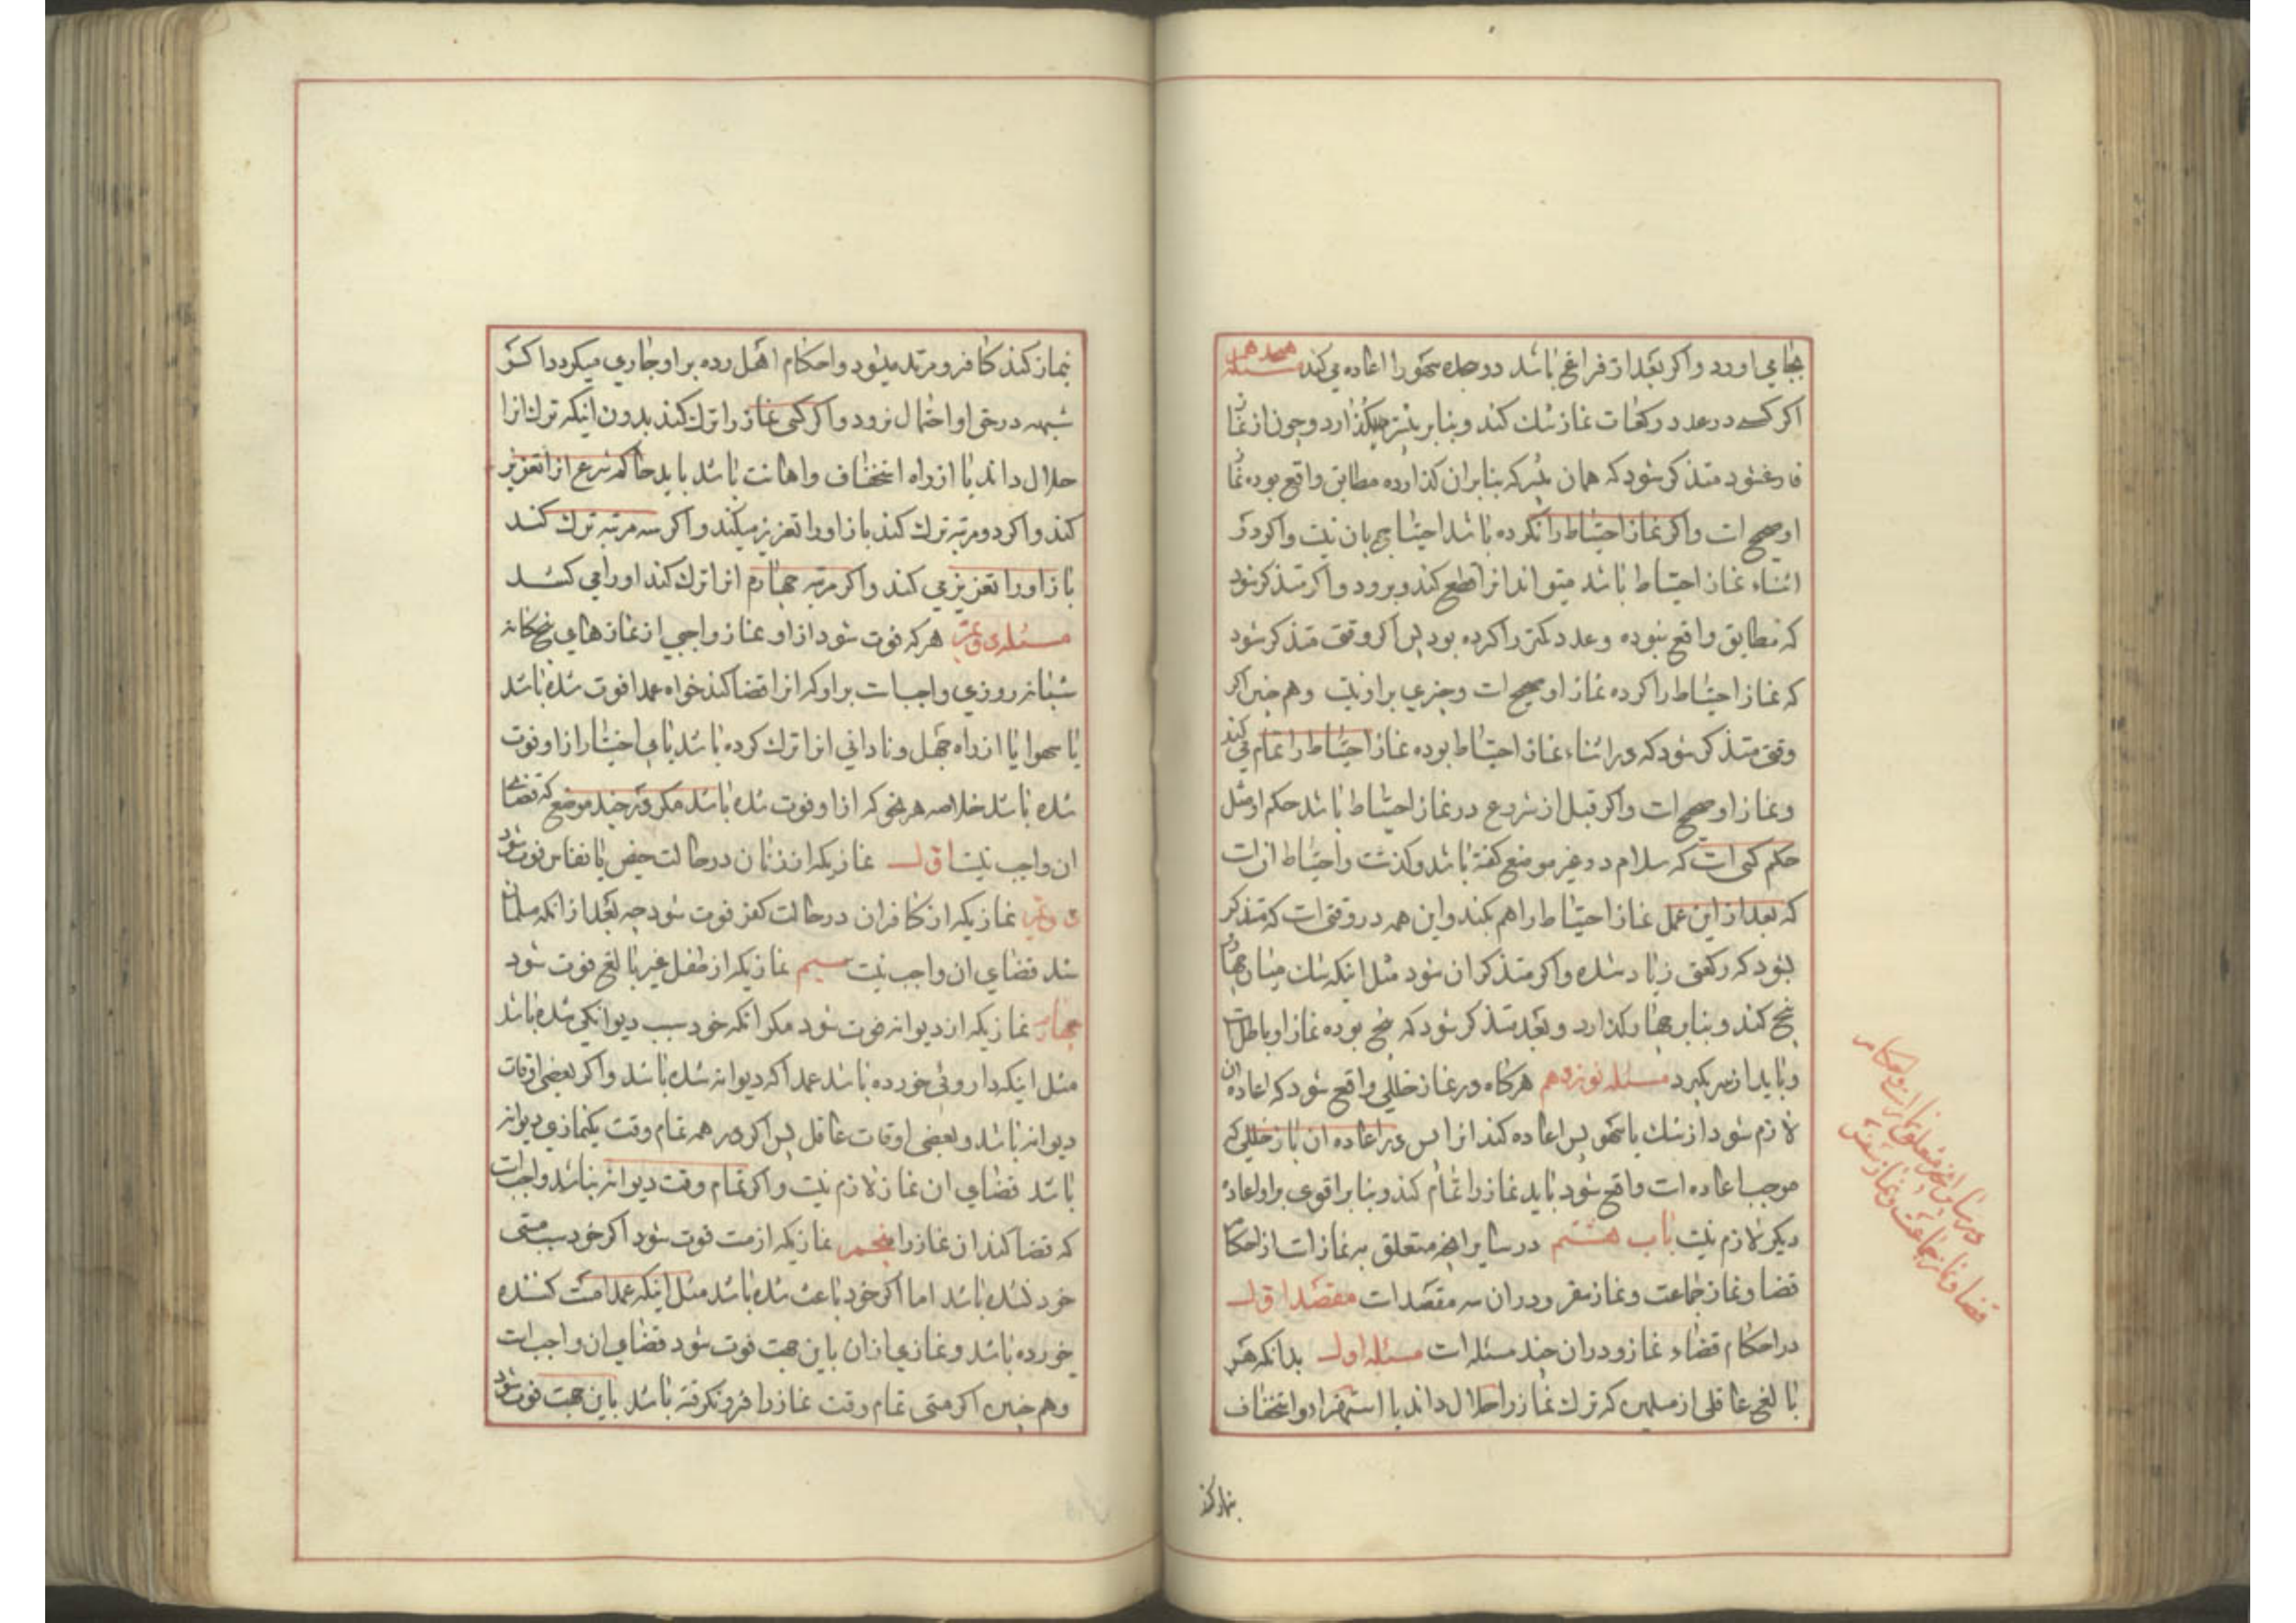 بجای اورد و اکر بعد از فراغ باشد دو جده سهو را اعاده می کند مسئله هیجدهم
اکر کسی در عدد رکعات نماز شک کند و بنا بر بیشتر میکذارد و چون از نماز
فارغ شود متذکر شود که همان بیشتر که بنا بران کذارده مطابق واقع بوده نماز
او صحیح است و اکر نماز احتیاط را نکرده باشد احتیاجی بان نیست و اکر در
اثناء نماز احتیاط باشد میتواند انرا قطع کند و برود و اکر متذکر شود
که مطابق واقع نبوده و عدد کمتر را کرده بود پس اکر وقتی متذکر شود
که نماز احتیاط را کرده نماز او صحیح است و چیزی بر او نیست و هم چنین اکر
وقتی متذکر شود که در اثناء نماز احتیاط بوده نماز احتیاط را تمام می کند
و نماز او صحیح است و اکر قبل از شروع در نماز احتیاط باشد حکم او مثل
حکم کسی است که سلام در غیر موضع کفته باشد و کذشت و احتیاط ان است
که بعد از این عمل نماز احتیاط را هم بکند و این همه در وقتی است که متذکر
نشود که رکعتی زیاد شده و اکر متذکر ان شود مثل اینکه شک میان چهار و
پنج کند و بنا بر چهار کذارد و بعد متذکر شود که پنج بوده نماز او باطل است
و باید از سر بکیرد مسئله نوزدهم هرکاه در نماز خللی واقع شود که اعاده ان
لازم شود از شک یا سهو پس اعاده کند انرا پس در اعاده ان باز خللی که
موجب اعاده است واقع شود باید نماز را تمام کند و بنا بر اقوی بر او اعاده
دیکر لازم نیست باب هشتم در سایر انچه متعلق به نماز است از احکام
قضا و نماز جماعت و نماز سفر و در ان سه مقصد است مقصد اول
در احکام قضاء نماز و در ان چند مسئله است مسئله اول بدانکه هر
بالغ عاقلی از مسلمین که ترک نماز را حلال داند یا استهزاء و استخفاف
بنماز کند
در بیان انچه متعلق بنماز است از احکام
قضا و نماز جماعت و نماز سفر
بنماز کند کافر و مرتد میشود و احکام اهل رده بر او جاری میکردد اکر
شبهه در حق او احتمال نرود و اکر کسی نماز را ترک کند بدون اینکه ترک انرا
حلال داند یا از راه استخفاف و اهانت باشد باید حاکم شرع انرا تعزیر
کند و اکر دو مرتبه ترک کند باز او را تعزیر میکند و اکر سه مرتبه ترک کند
باز او را تعزیر می کند و اکر مرتبه چهارم انرا ترک کند او را می کشد
مسئله دویم هر که فوت شود از او نماز واجبی از نمازهای پنجکانه
شبانه روزی واجب است بر او که انرا قضا کند خواه عمدا فوت شده باشد
یا سهوا یا از راه جهل و نادانی انرا ترک کرده باشد یا بی اختیار از او فوت
شده باشد خلاصه هر نحوی که از او فوت شده باشد مکر در چند موضع که قضای
ان واجب نیست اول نمازیکه از زنان در حالت حیض یا نفاس فوت شود
دویم نمازیکه از کافران در حالت کفر فوت شود چه بعد از انکه مسلمان
شد قضای ان واجب نیست سیم نمازیکه از طفل غیر بالغ فوت شود
چهارم نمازیکه از دیوانه فوت شود مکر انکه خود سبب دیوانکی شده باشد
مثل اینکه داروئی خورده باشد عمدا که دیوانه شده باشد و اکر بعضی اوقات
دیوانه باشد و بعضی اوقات عاقل پس اکر در همه تمام وقت یکنمازی دیوانه
باشد قضای ان نماز لازم نیست و اکر تمام وقت دیوانه نباشد واجب است
که قضا کند ان نماز را پنجم نمازیکه از مست فوت شود اکر خود سبب مستی
خود نشده باشد اما اکر خود باعث شده باشد مثل اینکه عمدا مست کننده
خورده باشد و نمازی از ان باین جهت فوت شود قضای ان واجب است
و هم چنین اکر مستی تمام وقت نماز را فرو نکرفته باشد باین جهت فوت شود